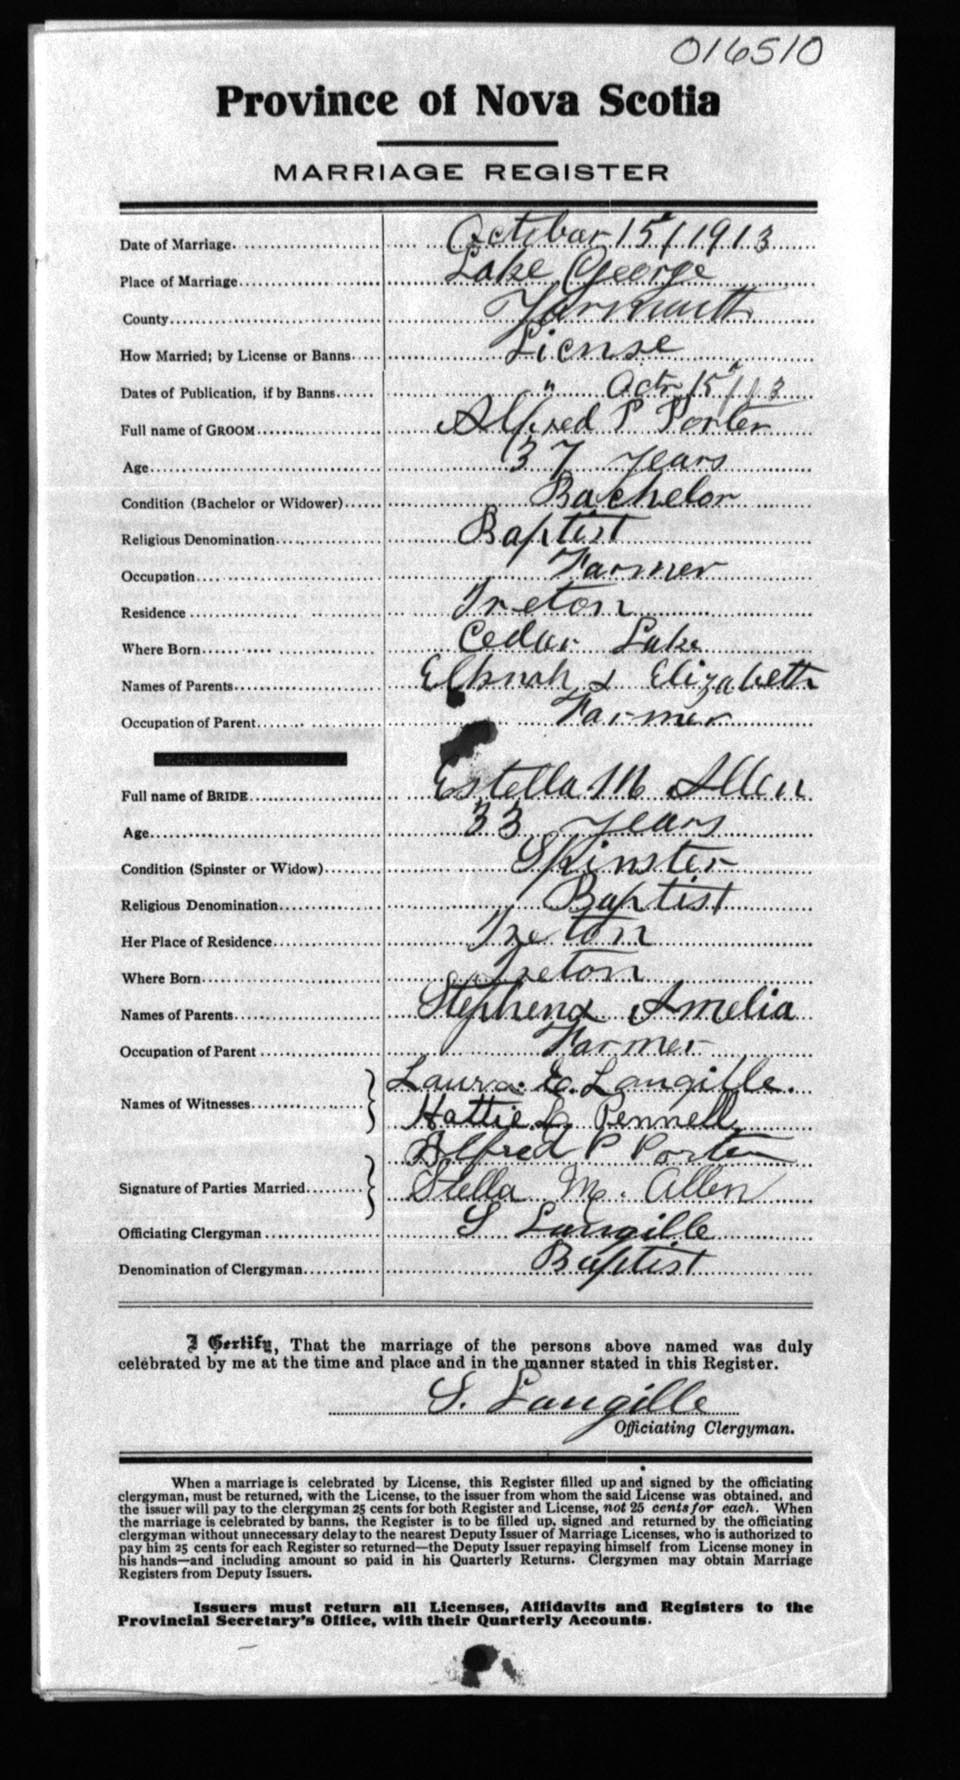 016510
Province of Nova Scotia
MARRIAGE REGISTER
Date of Marriage October 15th/1913
Place of Marriage Lake George
County Yarmouth
How Married; by License or Banns License
Dates of Publication, if by Banns " Octr 15th/13
Full name of GROOM Alfred P Porter
Age 37 years
Condition (Bachelor or Widower) Bachelor
Religious Denomination Baptist
Occupation Farmer
Residence Ireton
Where Born Cedar Lake
Names of Parents Elknah & Elizabeth
Occupation of Parent Farmer
Full name of BRIDE Estella M Allen
Age 33 years
Condition (Spinster or Widow) Spinster
Religious Denomination Baptist
Her Place of Residence Ireton
Where Born Ireton
Names of Parents Stephen & Amelia
Occupation of Parent Farmer
Names of Witnesses Laura E. Langille.
Hattie L. Pennell
Signature of Parties Married Alfred P Porter
Stella M. Allen
Officiating Clergyman S Langille
Denomination of Clergyman Baptist
I Certify, That the marriage of the persons above named was duly
celebrated by me at the time and place and in the manner stated in this Register.
S. Langille
Officiating Clergyman.
When a marriage is celebrated by License, this Register filled up and signed by the officiating
clergyman, must be returned, with the License, to the issuer from whom the said License was obtained, and
the issuer will pay to the clergyman 25 cents for both Register and License, not 25 cents for each. When
the marriage is celebrated by banns, the Register is to be filled up, signed and returned by the officiating
clergyman without unnecessary delay to the nearest Deputy Issuer of Marriage Licenses, who is authorized to
pay him 25 cents for each Register so returned—the Deputy Issuer repaying himself from License money in
his hands—and including amount so paid in his Quarterly Returns. Clergymen may obtain Marriage
Registers from Deputy Issuers.
Issuers must return all Licenses, Affidavits and Registers to the
Provincial Secretary's Office, with their Quarterly Accounts.